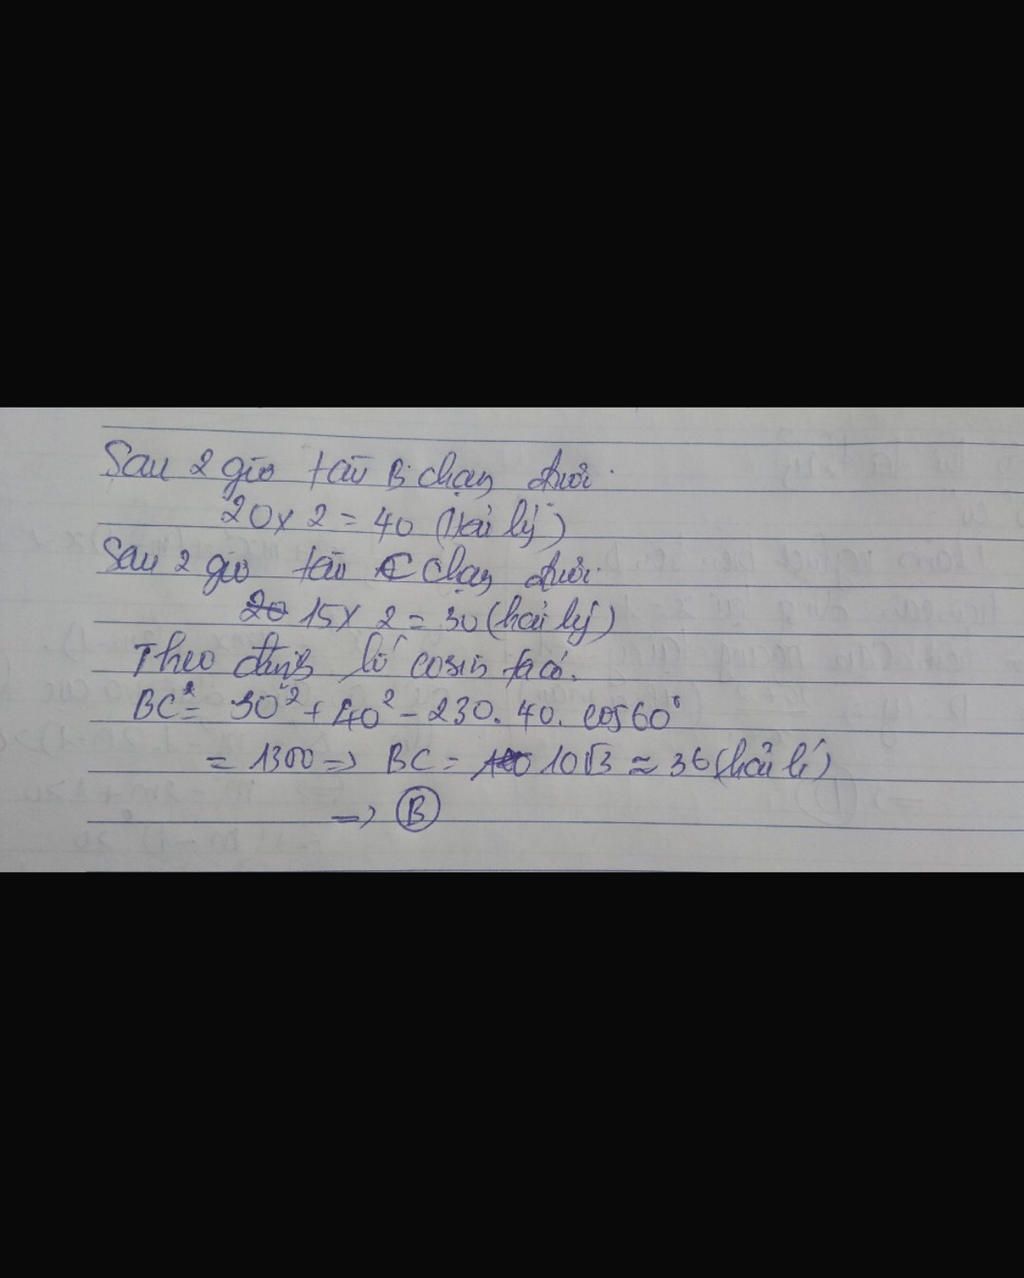 Sau 2 giờ tàu B chạy được
20 x 2 = 40 (Hải lý)
Sau 2 giờ tàu C chạy được
15 x 2 = 30 (hải lý)
Theo định lí cosin ta có.
BC² = 30² + 40² - 230. 40. cos60°
= 1300 => BC = 10√3 ≈ 36 (hải lí)
=> B